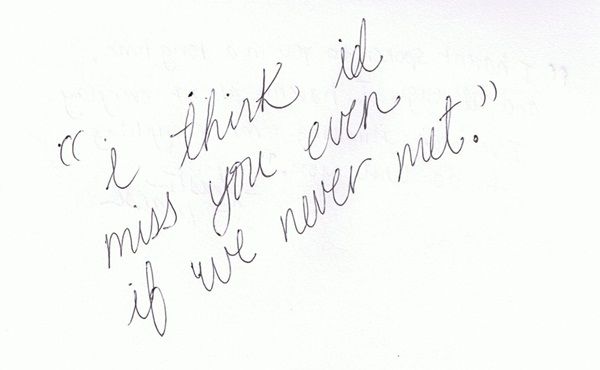 “i think id
miss you even
if we never met.”